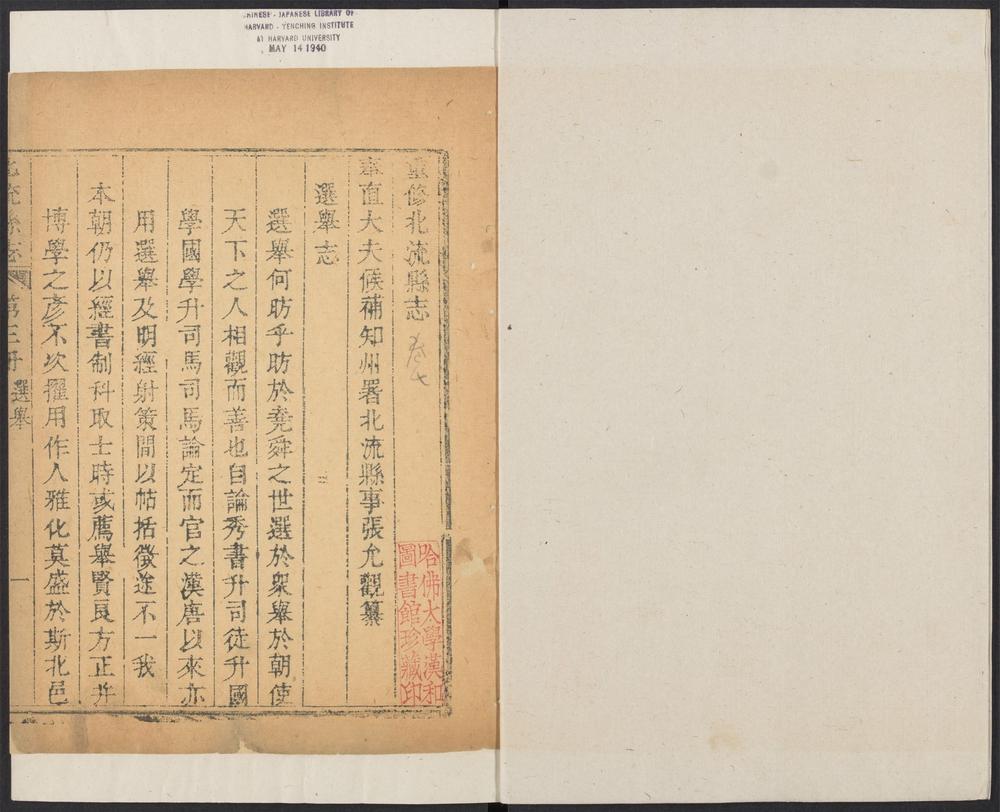 CHINESE - JAPANESE LIBRARY OF
HARVARD - YENCHING INSTITUTE
AT HARVARD UNIVERSITY
MAY 14 1940
重修北流縣志
卷七
奉直大夫候補知州署北流縣事張允觀纂
選舉志
選舉何昉乎昉於堯舜之世選於眾舉於朝使
天下之人相觀而善也自論秀書升司徒升國
學國學升司馬司馬論定而官之漢唐以來亦
用選舉及明經射策間以帖括徵途不一我
本朝仍以經書制科取士時或薦舉賢良方正并
博學之彥不次擢用作人雅化莫盛於斯北邑
北流縣志
第三冊
選舉
一
哈佛大學漢和
圖書館珍藏印